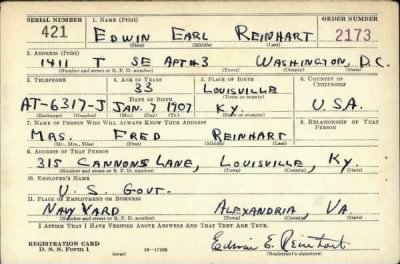 SERIAL NUMBER 1. NAME (Print) ORDER NUMBER
421 EDWIN EARL REINHART 2173
(First) (Middle) (Last)
2. ADDRESS (Print)
1411 T SE APT #3 WASHINGTON, D.C.
(Number and street or R. F. D. number) (Town) (County) (State)
3. TELEPHONE 4. AGE IN YEARS 5. PLACE OF BIRTH 6. COUNTRY OF CITIZENSHIP
33 LOUISVILLE
DATE OF BIRTH (Town or county)
AT-6317-J JAN. 7 1907 KY. U.S.A.
(Exchange) (Number) (Mo.) (Day) (Yr.) (State or country)
7. NAME OF PERSON WHO WILL ALWAYS KNOW YOUR ADDRESS 8. RELATIONSHIP OF THAT PERSON
MRS. FRED REINHART
(Mr., Mrs., Miss) (First) (Middle) (Last)
9. ADDRESS OF THAT PERSON
315 CANNONS LANE, LOUISVILLE, KY.
(Number and street or R. F. D. number) (Town) (County) (State)
10. EMPLOYER'S NAME
U.S. GOVT.
11. PLACE OF EMPLOYMENT OR BUSINESS
NAVY YARD ALEXANDRIA, VA
(Number and street or R. F. D. number) (Town) (County) (State)
I AFFIRM THAT I HAVE VERIFIED ABOVE ANSWERS AND THAT THEY ARE TRUE.
Edwin E. Reinhart
REGISTRATION CARD
D. S. S. Form 1 (over) (Registrant's signature)